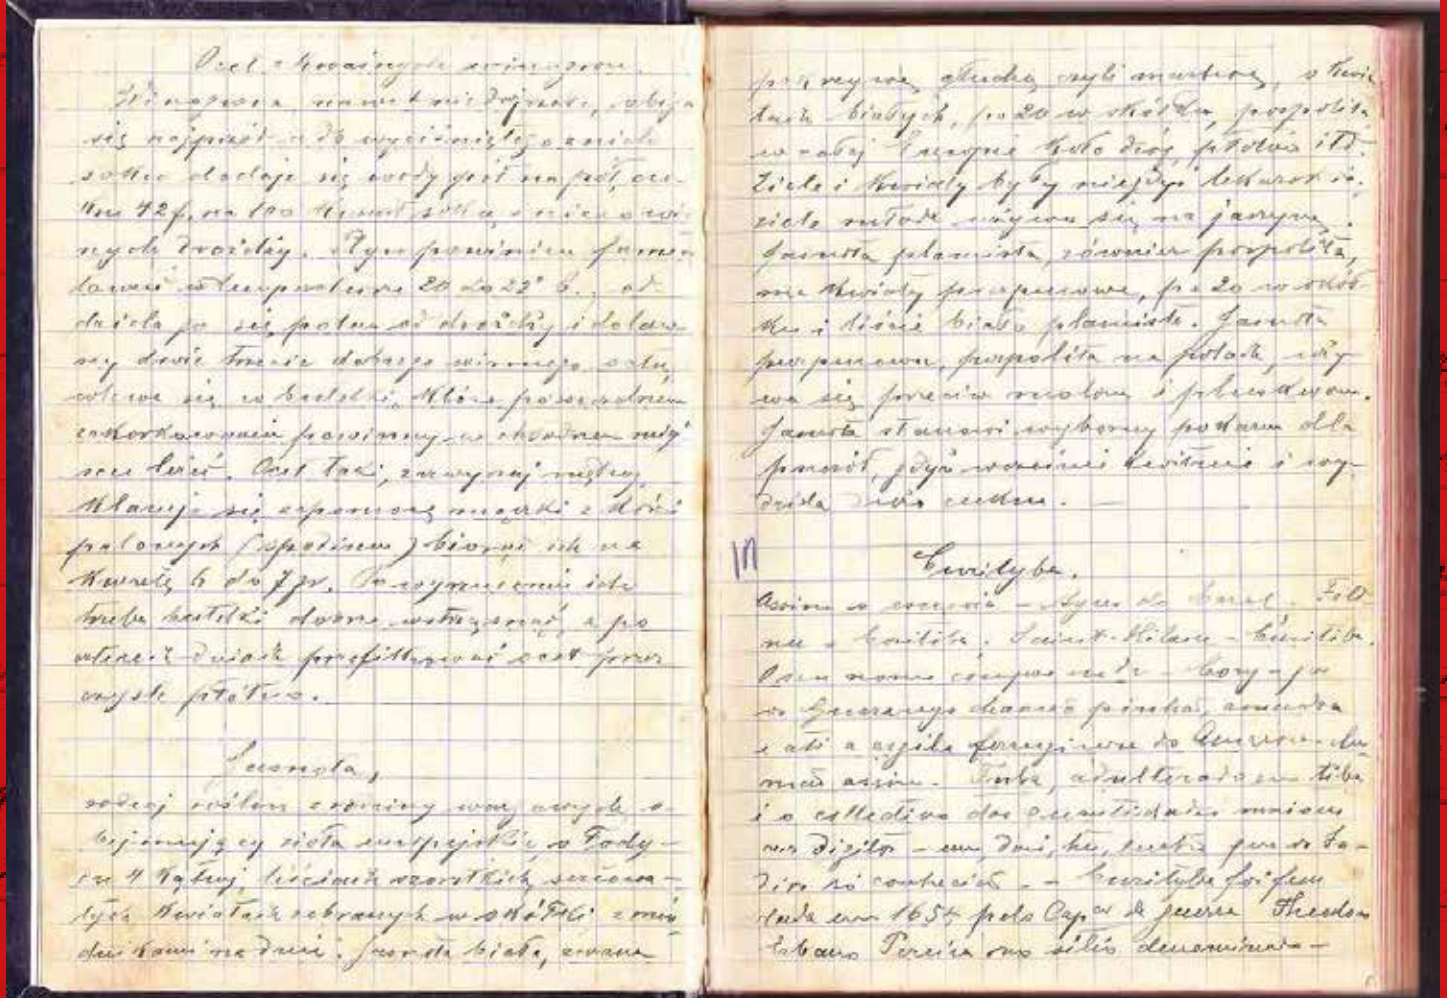 Ocet z kwaśnych winogron.
Winogrona nawet niedojrzałe, obija
się najpierw a do wyciśniętego z nich
soku dodaje się wody pół na pół, cu-
kru 42 f. na 100 soku i nieco win
nych drożdży. Płyn powinien fermen
tować w temperaturze 20 do 22° , od
dziela go się potem od drożdży i dolaw
szy dwie trzecie dobrego winnego octu,
wlewa się w butelki, które po
zakorkowaniu powinny w chłodnem miej
scu leżeć. Ocet taki, zazwyczaj mętny,
klaruje się zapomocą mączki z kości
palonych (spodium) biorąc ich na
kwartę 6 do 7 gr. Po wyrzuceniu ich
trzeba butelki dobrze wstrząsnąć, a po
dniach przefiltrować ocet przez
czyste płótno.
Jasnota,
rodzaj roślin z rodziny wargowych o-
bejmujący zioła europejskie, o łody-
rze 4 kątnej, liściach szorstkich, sercowa-
tych kwiatach zebranych w okółki z mio
dnikami na dnie. Jasnota biała, zwana
pokrzywą głuchą czyli martwą, o kwia
tach białych, po 20 w okółku, pospolita
w całej Europie koło dróg, płotów itd.
Ziele i kwiaty były niegdyś lekarskie,
ziele młode używa się na jarzynę.
Jasnota plamista, również pospolita,
ma kwiaty purpurowe, po 20 w okół
ku i liście biało plamiste. Jasnota
purpurowa, pospolita na polach, uży
wa się przeciw molom i pluskwom.
Jasnota stanowi wyborny pokarm dla
pszczół, gdyż wcześnie kwitnie i wy-
dziela dużo cukru. —
Curityba.
Assim o escrevia – Ayres do Cazal.
– Curitiba. Saint-Hilaire – Curitiba.
nome – Cory – ja
o Guarany chama pinhão,
e ati a
assim. Tuba, adulterado em tiba
é o colletivo das quantidades maiores
– um, dois, tres, quatro que o In-
dio só conhecia. – Curityba foi fun
dada em 1654 pelo Capᵃᵒ de guerra Theodoro
Ebano Pereira no sitio denominado –